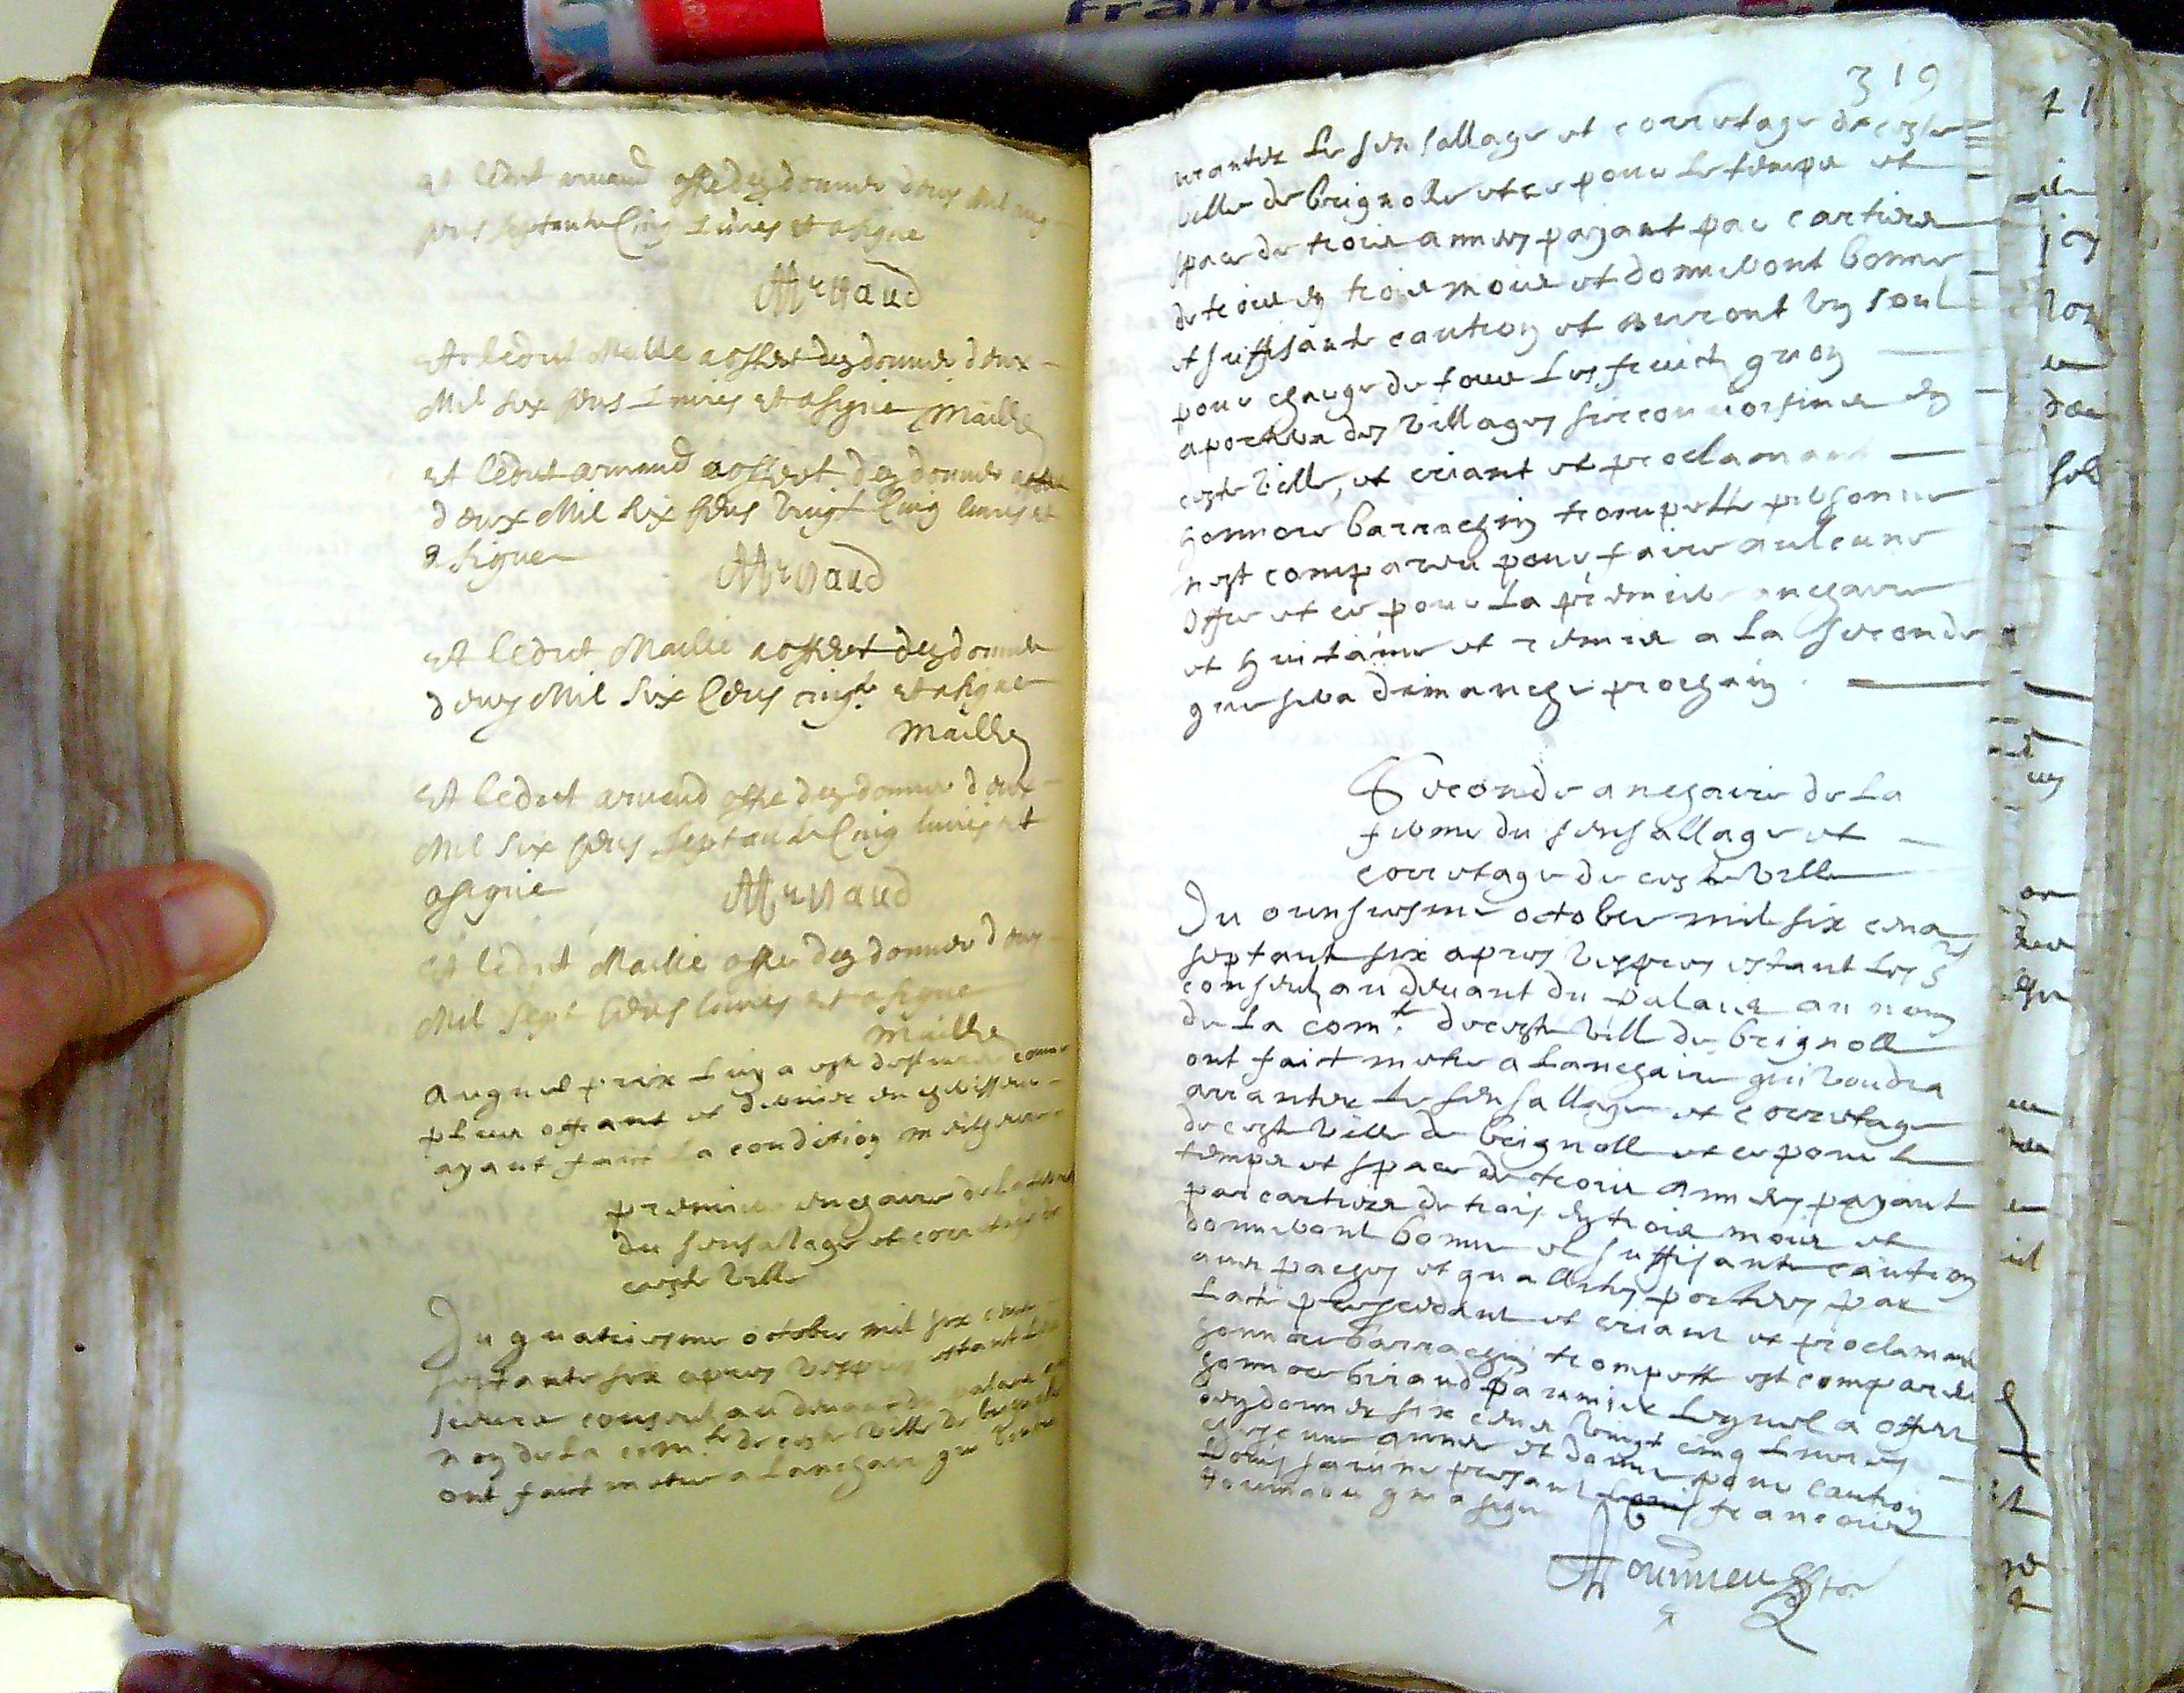 et ledict arnaud offre dey donner deux mil cinq
cens septante cinq livres et a signe
Arnaud
et ledict Maille a offert dey donner deux
mil six cens livres et a signe Maille
et ledict arnaud a offert dey donner
deux mil six cens vingt cinq livres et
a signe
Arnaud
et ledict Maille a offert dey donner
deux mil six cens et a signe
Maille
et ledict arnaud offre dey donner deux
mil six cens septante cinq livres et
a signe
Arnaud
et ledict Maille offre dey donner deux
mil sept cens livres et a signe
Maille
auquel prix luy a este comme
plus offrant et dernier encherisseur
ayant faict la condition meilheure
premiere enchaire de la ferme
du sensallage et corretage de
ceste ville
Du quatriesme octobre mil six cens
septante six apres vespres estant les
sieurs consuls au devant du palais au
nom de la com.te de ceste ville de brignolle
ont faict metre a lanchaire qui voudra
319
arranter le sensallage et corretage de ceste
ville de brignolle et ce pour le temps et
space de trois annees payant par cartiers
de trois en trois mois et donneront bonne
et suffisante caution et auront un soul
pour charge de tous les fruicts quon
aportera des villages circonvoisins en
ceste ville, et criant et proclamant
honnore barrachin trompette personne
nest compareu pour faire aulcune
offre et ce pour la premiere anchaire
et huitaine et remise a la seconde
que sera dimanche prochain
Seconde anchaire de la
ferme du sensallage et
corretage de ceste ville
Du ounsiesme octobre mil six cens
septante six apres vespres estant les srs
consuls au devant du palais au nom
de la com.te de ceste ville de brignolle
ont faict metre a lanchaire qui voudra
arranter le sensallage et corretage
de ceste ville de brignolle et ce pour le
temps et space de trois annees payant
par cartiers de trois en trois mois et
donneront bonne et suffisante caution
aux paches et quallites portees par
lacte precedant et criant et proclamant
honnore barrachin trompette est compareu
honnore giraud paumier lequel a offert
dey donner six cens vingt cinq livres
chescune annee et donne pour caution
Louis present francois
fournier que a signe
fournier